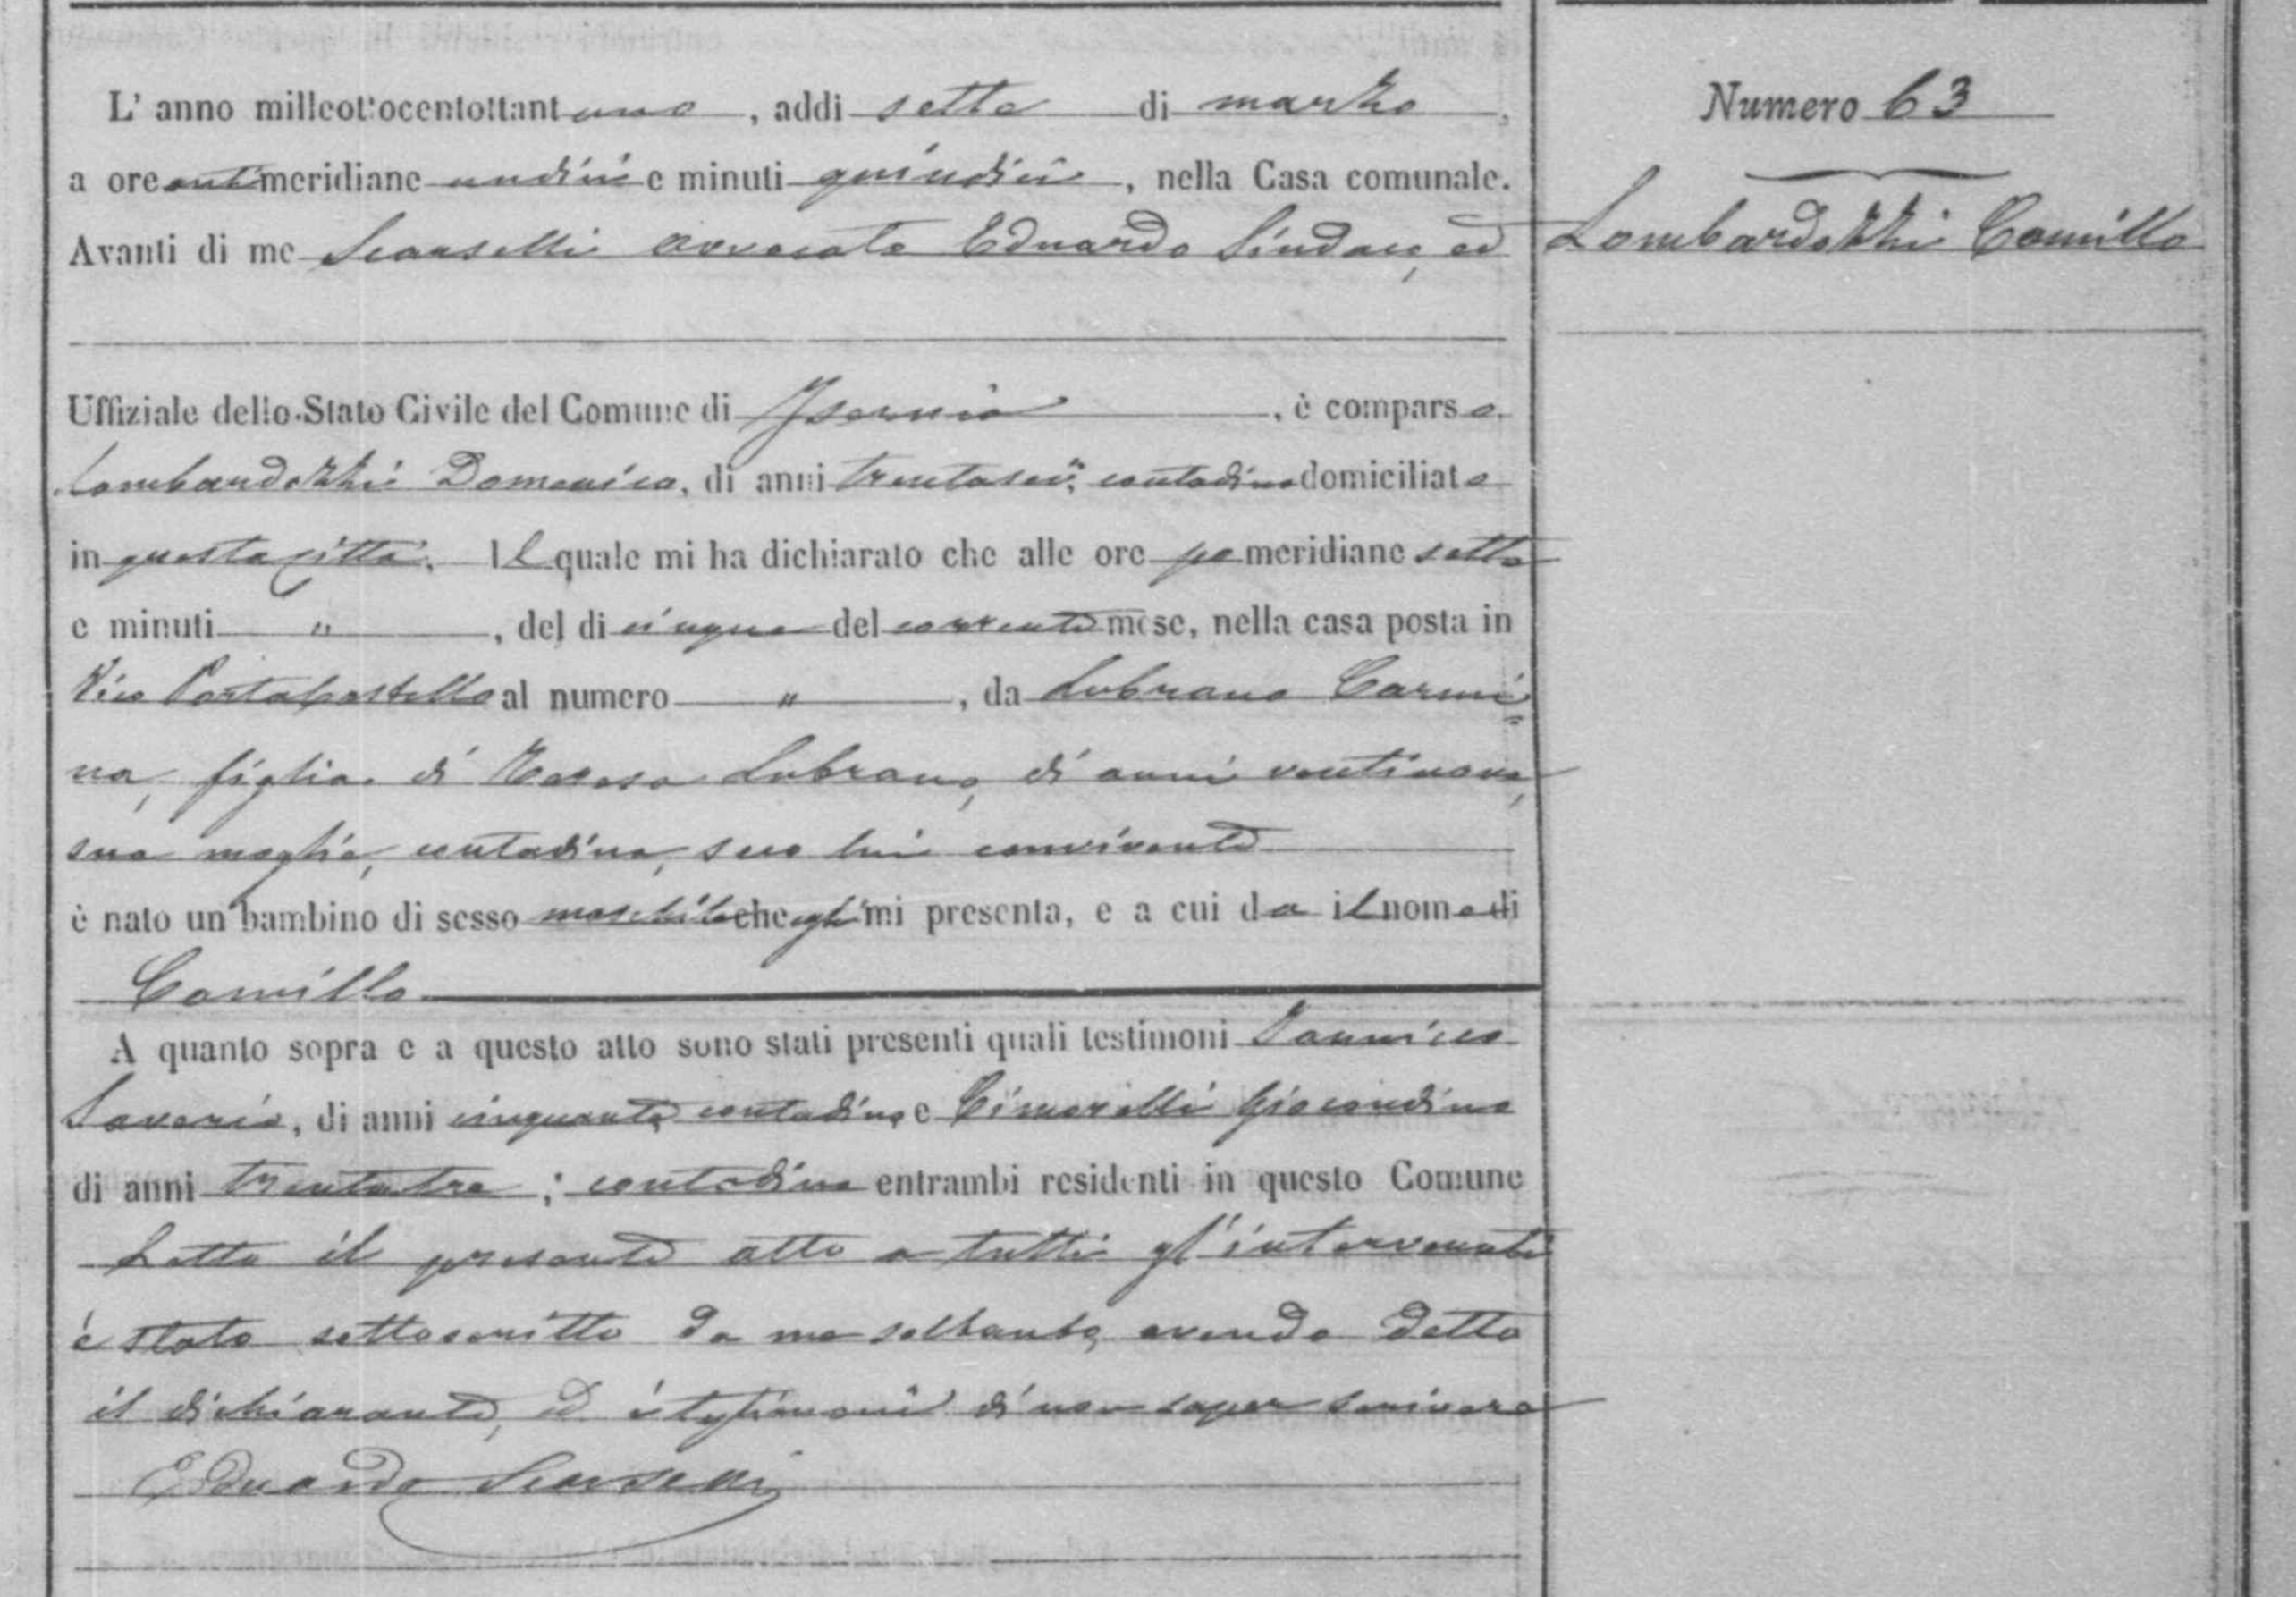 L' anno milleottocentottantuno, addi sette di marzo,
a ore antimeridiane undici e minuti quindici, nella Casa comunale.
Avanti di me Scarselli avvocato Eduardo Sindaco, ed
Uffiziale dello Stato Civile del Comune di Isernia, è comparso
Lombardozzi Domenico, di anni trentasei, contadino domiciliato
in questa città, Il quale mi ha dichiarato che alle ore pomeridiane sette
e minuti ", del dì cinque del corrente mese, nella casa posta in
Vico Portacastello al numero ", da Lubrano Carmi=
na, figlia di Lubrano, di anni ventinove,
sua moglie, contadina, seco lui convivente
è nato un bambino di sesso maschile che egli mi presenta, e a cui da il nome di
Camillo
A quanto sopra e a questo atto sono stati presenti quali testimoni Iannicco
Saverio, di anni cinquanta, contadino, e Cimorelli Giocondino
di anni trentatre; contadino entrambi residenti in questo Comune
Letto il presente atto a tutti gl'intervenuti
è stato sottoscritto da me soltanto, avendo detto
il dichiarante, ed i testimoni di non saper scrivere
Eduardo Scarselli
Numero 63
Lombardozzi Camillo